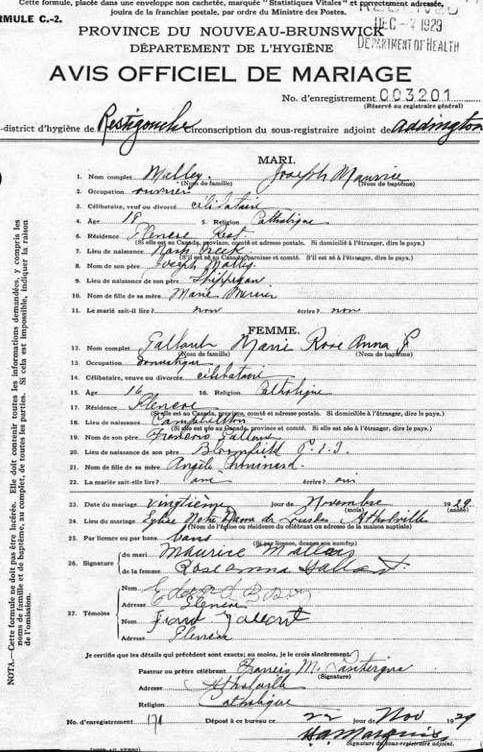 Cette formule, placée dans une enveloppe non cachetée, marquée "Statistiques Vitales" et correctement adressée,
jouira de la franchise postale, par ordre du Ministre des Postes.
RMULE C.-2.
DEC - 1929
DEPARTMENT OF HEALTH
PROVINCE DU NOUVEAU-BRUNSWICK
DÉPARTEMENT DE L'HYGIÈNE
AVIS OFFICIEL DE MARIAGE
No. d'enregistrement 003201
(Réservé au registraire général)
-district d'hygiène de Restigouche Circonscription du sous-registraire adjoint de Addington
MARI.
1. Nom complet Malley Joseph Maurice
(Nom de famille) (Nom de baptême)
2. Occupation ouvrier
3. Célibataire, veuf ou divorcé célibataire
4. Age 18 5. Religion Catholique
6. Résidence Glencoe Rest
(Si elle est au Canada, province, comté et adresse postale. Si domicilié à l'étranger, dire le pays.)
7. Lieu de naissance Nash Creek
(S'il est au Canada, province et comté. S'il est né à l'étranger, dire le pays.)
8. Nom de son père Joseph Malley
9. Lieu de naissance de son père Shippegan
10. Nom de fille de sa mère Marie
11. Le marié sait-il lire? non écrire? non
FEMME.
12. Nom complet Gallant Marie Rose Anna
(Nom de famille) (Nom de baptême)
13. Occupation
14. Célibataire, veuve ou divorcée célibataire
15. Age 16 16. Religion Catholique
17. Résidence Glencoe
(Si elle est au Canada, province, comté et adresse postale. Si domiciliée à l'étranger, dire le pays.)
18. Lieu de naissance Campbellton
(Si elle est née au Canada, province et comté. Si elle est née à l'étranger, dire le pays.)
19. Nom de son père François Gallant
20. Lieu de naissance de son père Bloomfield P.E.I.
21. Nom de fille de sa mère Angèle
22. La mariée sait-elle lire? oui écrire? oui
23. Date du mariage vingtième jour de Novembre 1929
(mois) (année)
24. Lieu du mariage Église Notre Dame de Lourdes Atholville
(Nom de l'église ou résidence du célébrant ou adresse de la maison nuptiale)
25. Par licence ou par bans bans
(Si par licence, donnez son numéro)
26. Signature du mari Maurice
de la femme Rose anna Gallant
27. Témoins
Nom
Adresse Glencoe
Nom Gallant
Adresse Glencoe
Je certifie que les détails qui précèdent sont exacts; au moins, je le crois sincèrement.
Pasteur ou prêtre célébrant Francis M. Lanteigne
(Signature)
Adresse Atholville
Religion Catholique
No. d'enregistrement 171 Déposé à ce bureau ce 22 jour de Nov 1929
Signature du sous-registraire adjoint
NOTA.—Cette formule ne doit pas être lacérée. Elle doit contenir toutes les informations demandées, y compris les
noms de famille et de baptême, au complet, de toutes les parties. Si cela est impossible, indiquer la raison
de l'omission.